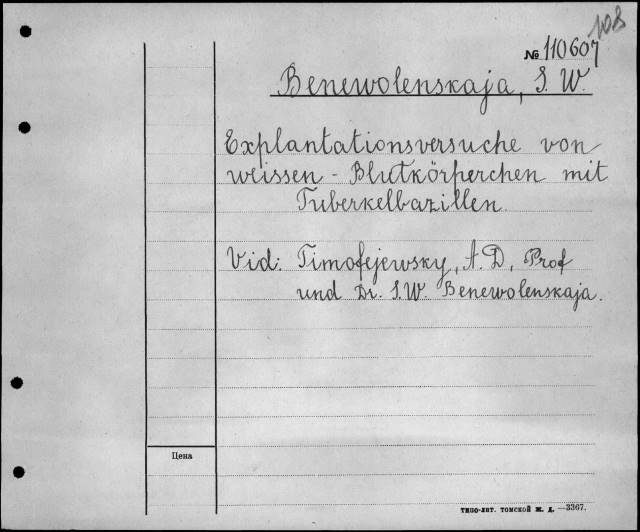 108
№ 110607
Benewolenskaja, S. W.
Explantationsversuche von
weissen - Blutkörperchen mit
Tuberkelbazillen
Vid: Timofejewsky, A. D, Prof
und Dr. S.W. Benewolenskaja.
Цена
ТИПО-ЛИТ. ТОМСКОЙ Ж. Д. —3367.